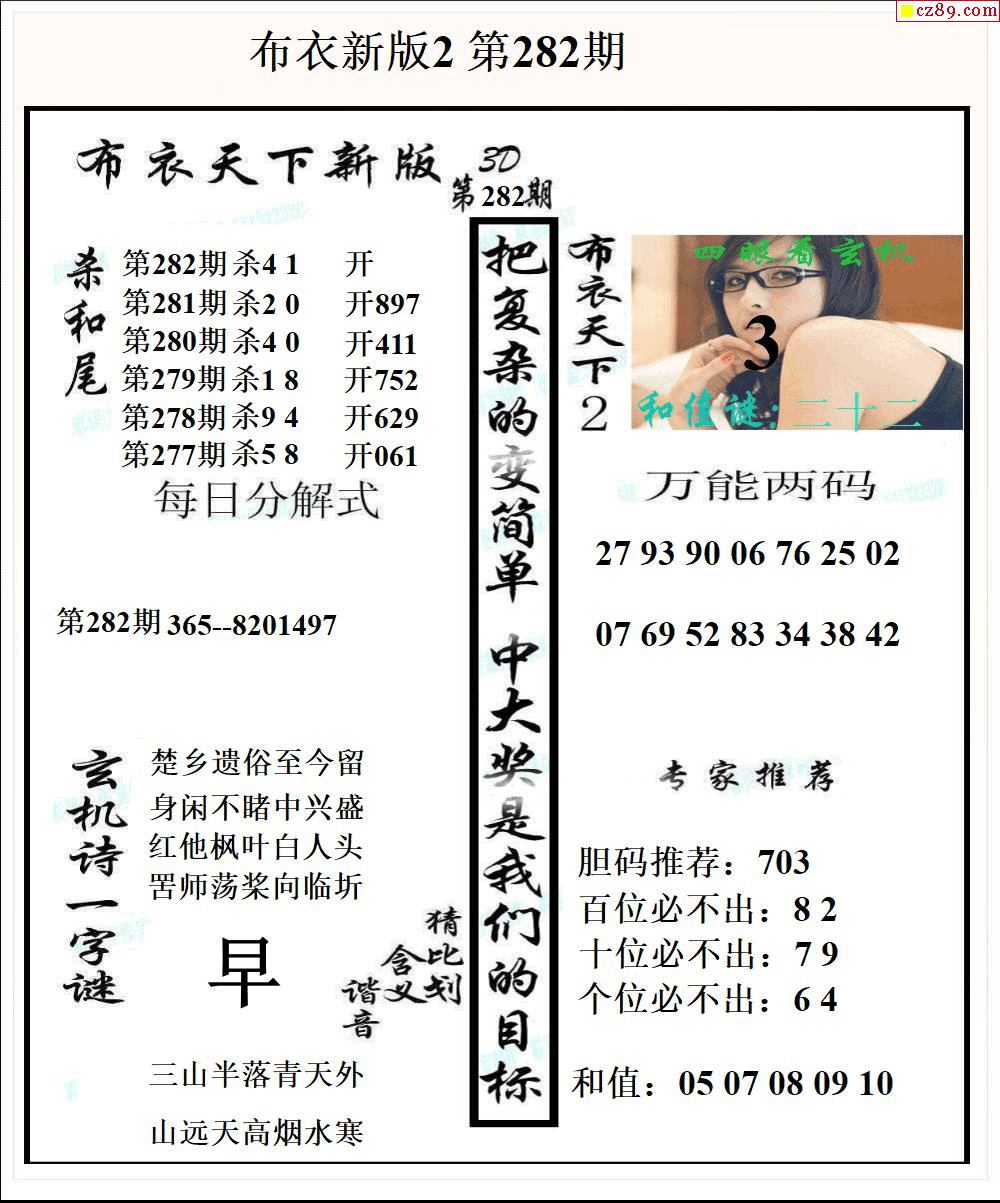 cz89.com
布衣新版2 第282期
布衣天下新版 3D
第282期
杀和尾
第282期 杀4 1 开
第281期 杀2 0 开897
第280期 杀4 0 开411
第279期 杀1 8 开752
第278期 杀9 4 开629
第277期 杀5 8 开061
每日分解式
第282期 365--8201497
玄机诗一字谜
楚乡遗俗至今留
身闲不睹中兴盛
红他枫叶白人头
罟师荡桨向临圻
早
猜比划
含义
谐音
三山半落青天外
山远天高烟水寒
把复杂的变简单 中大奖是我们的目标
布衣天下2
四眼看玄机
3
和值谜:二十二
万能两码
27 93 90 06 76 25 02
07 69 52 83 34 38 42
专家推荐
胆码推荐：703
百位必不出：8 2
十位必不出：7 9
个位必不出：6 4
和值：05 07 08 09 10